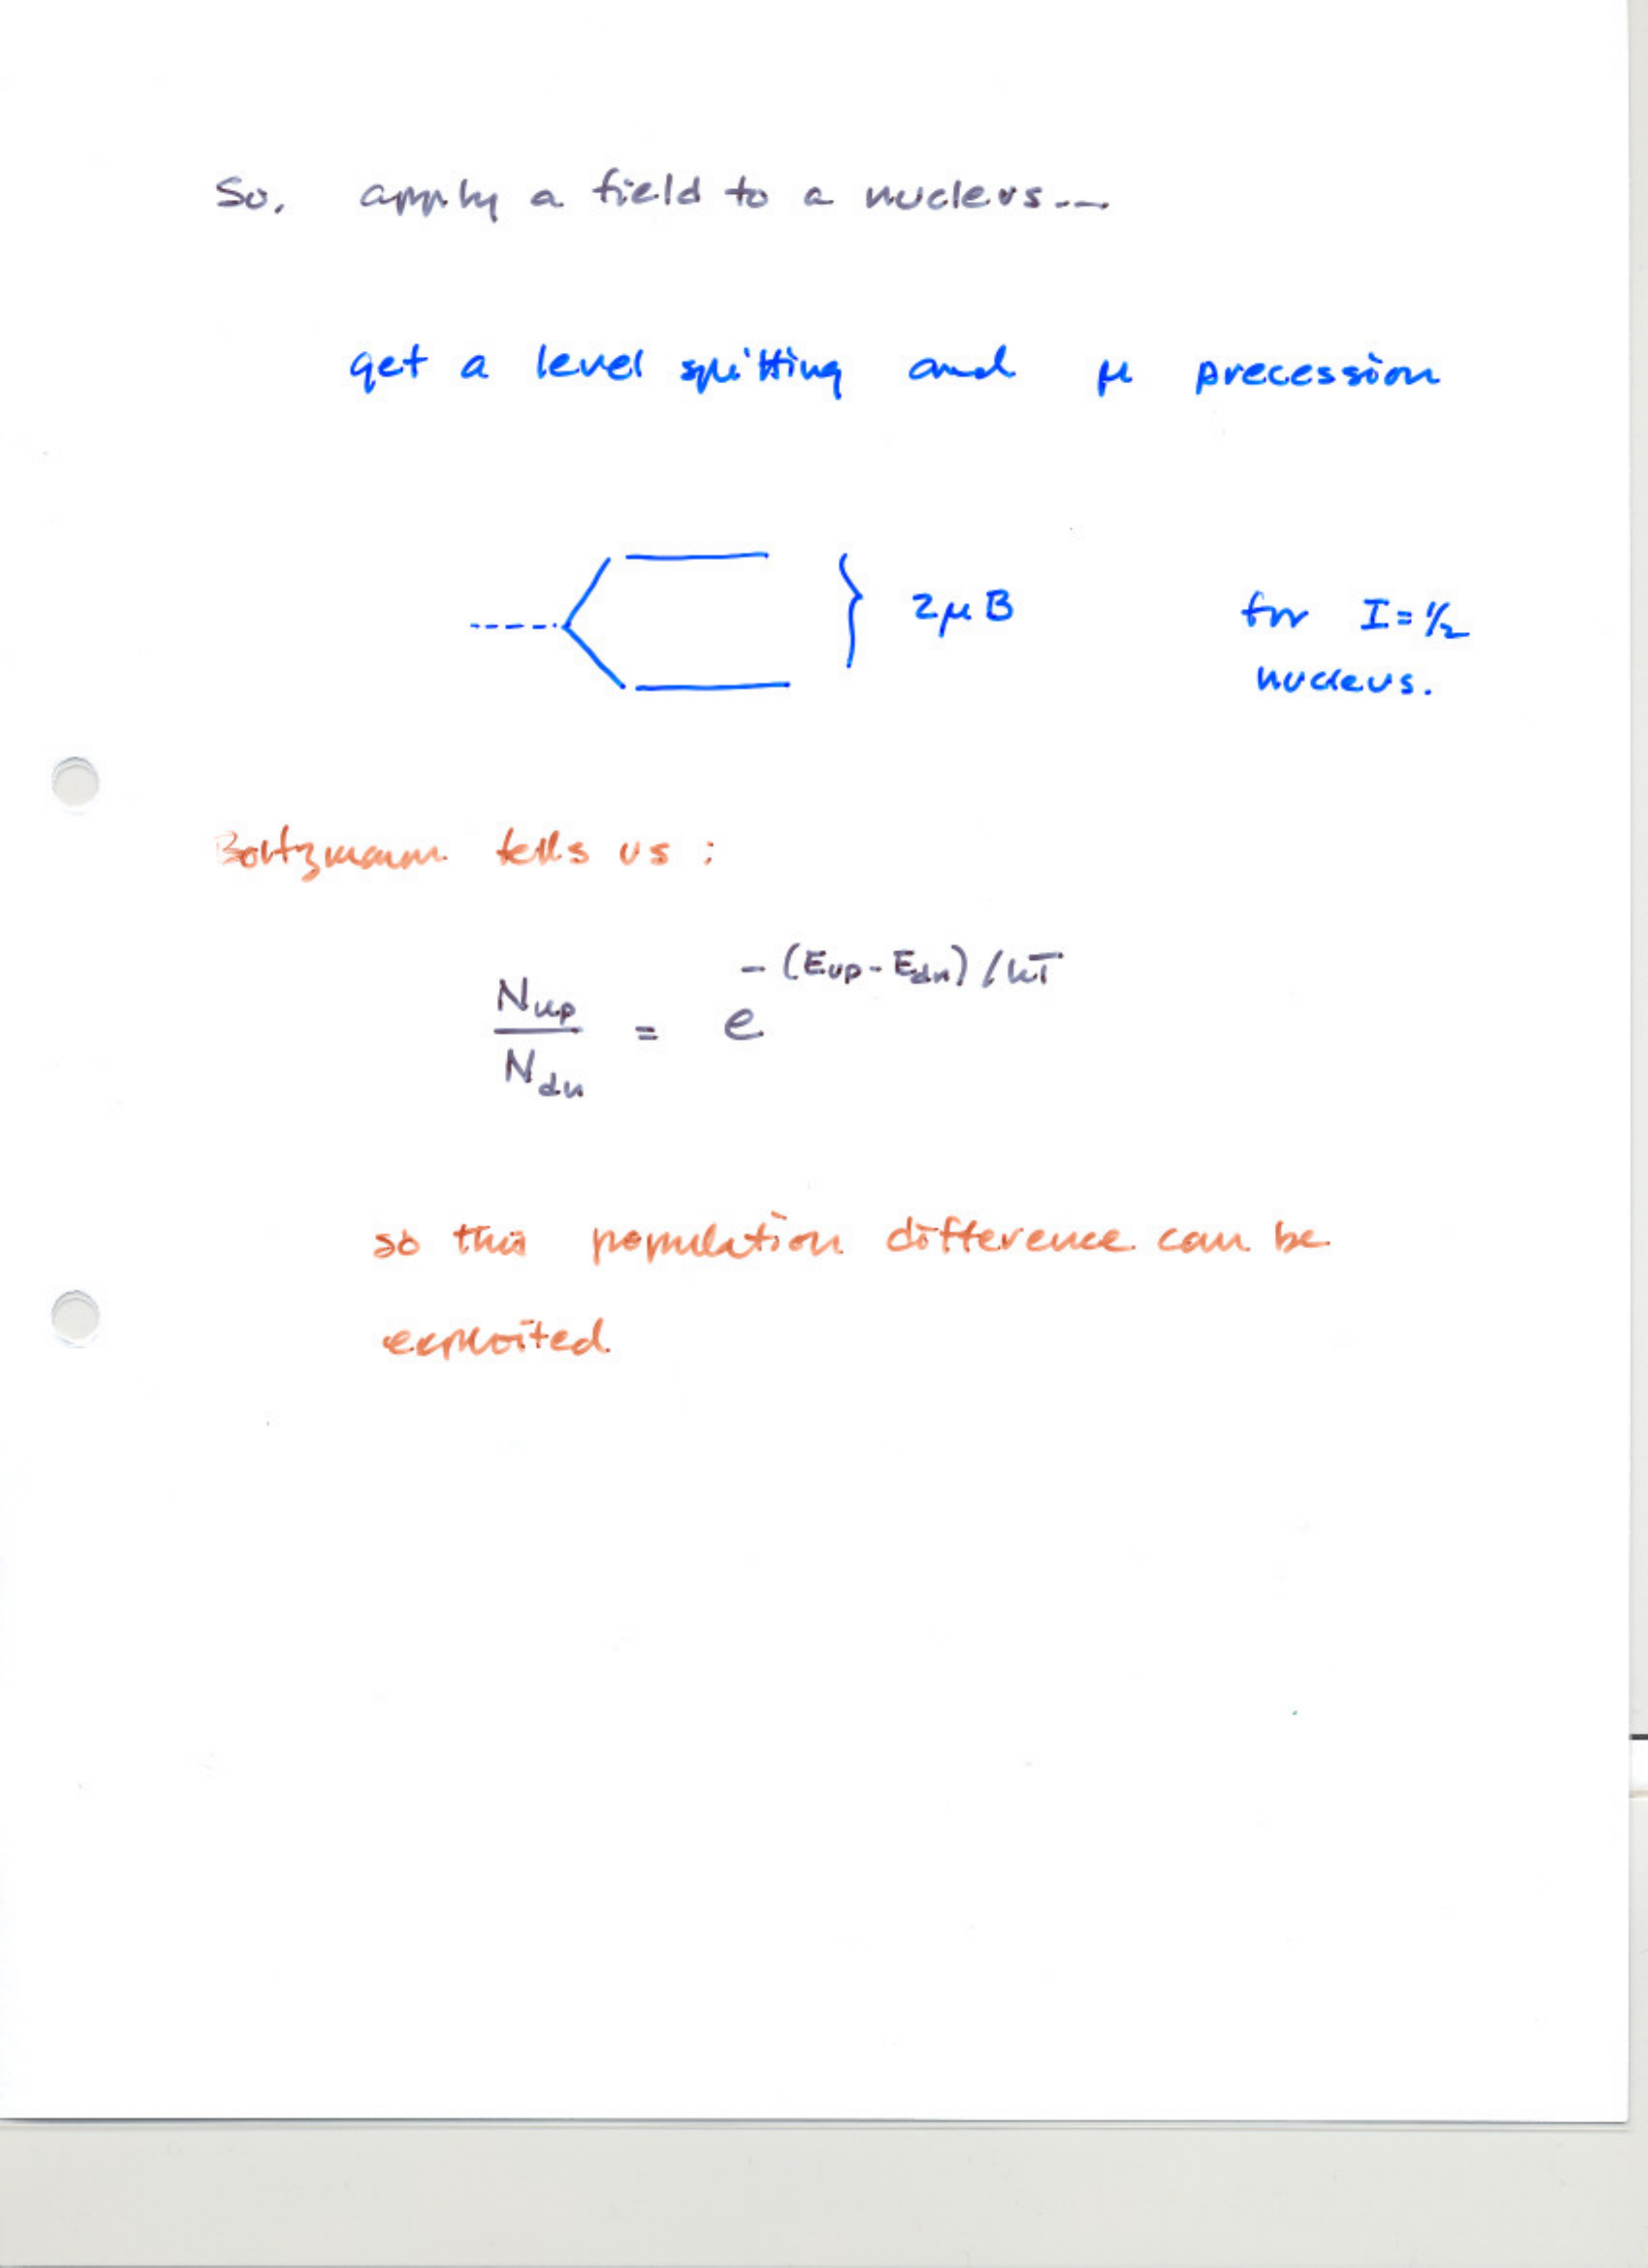 So, apply a field to a nucleus---
get a level splitting and μ precession
2μB
for I = 1/2
nucleus.
Boltzmann tells us :
N_up / N_dn = e^{-(E_up - E_dn)/kT}
so this population difference can be
exploited